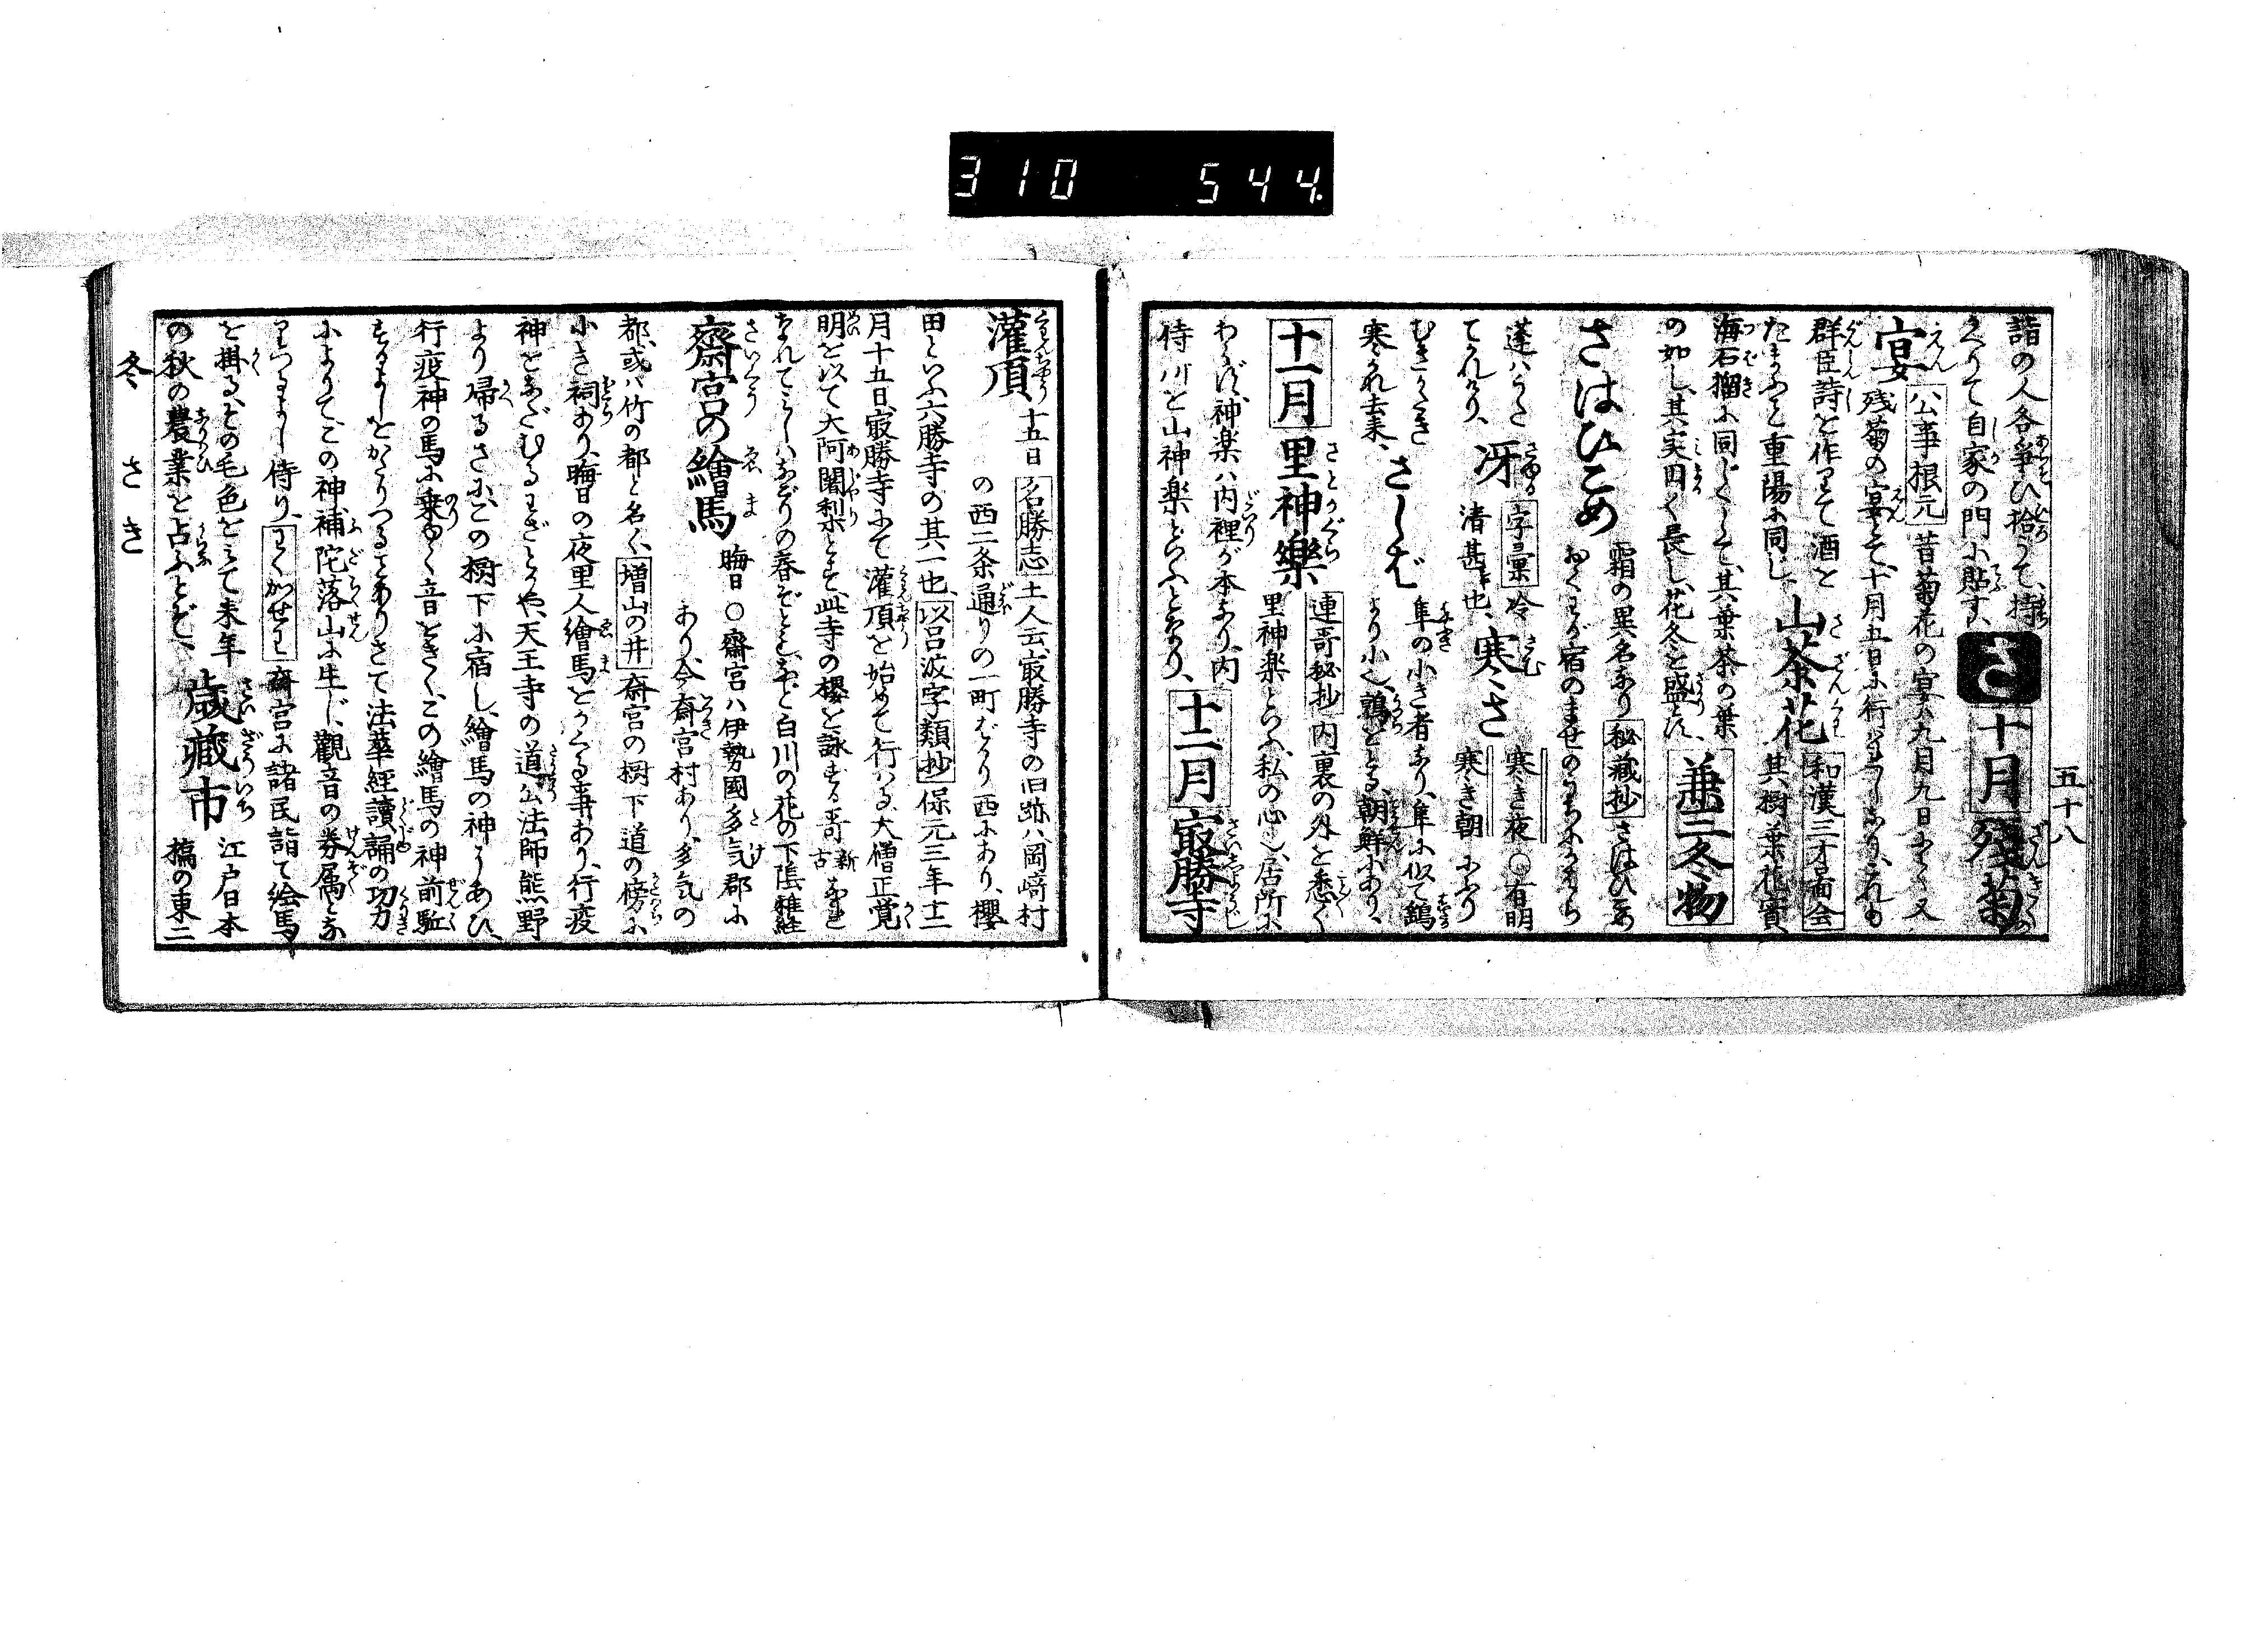 310 544.
五十八
詣の人各爭ひ拾うて、持
かへりて自家の門に貼す、
さ
十月
残菊
宴
公事根元
昔菊花の宴ハ九月九日
残菊の宴とて、十月五日に行
群臣詩を作りて酒を
たまふと重陽に同じ、
山茶花
和漢三才圖会
其樹葉花實、
海石榴に同じくして、其葉茶の葉
の如し、其実円く長し、花冬を盛とす、
兼三冬物
さはひこめ
霜の異名なり
秘藏抄
宿のませのうちに
蓬ハ
冴
字彙
冷
清甚也、
寒さ
寒き夜
○有明
寒き朝
さしば
隼の小き者なり、隼に似て鷂
より小、鶉をとる、朝鮮にあり、
十一月
里神樂
連哥秘抄
内裏の外を悉く
里神楽といふ、私の心、居所に
神楽ハ内裡が本なり、内
侍所を山神楽といふとなり、
十二月
冣勝寺
灌頂
十五日
名勝志
土人云、冣勝寺の旧跡ハ岡﨑村
の西二条通りの一町ばかり西にあり、櫻
田といふ六勝寺の其一也、
以呂波字類抄
保元三年十二
月十五日、冣勝寺にて灌頂を始めて行はる、大僧正覚
明を以て大阿闍梨とす、此寺の櫻を詠する哥
新古
なれて見しハなごりの春ぞともなど白川の花の下陰 雅経
齋宮の繪馬
晦日
○齋宮ハ伊勢國多気郡に
あり、今斎宮村あり、多気の
都、或ハ竹の都と名く、
増山の井
斎宮の樹下道の傍に
小き祠あり、晦日の夜里人繪馬をかくる事あり、行疫
神をなだむるわざとかや、天王寺の道公法師熊野
より帰るさに、この樹下に宿し、繪馬の神
行疫神の馬に乗ゆく音をきく、この繪馬の神前駈
するよしをかたりつることあり、さて法華経讀誦の功力
によりて、この神補陀落山に生じ、觀音の眷属とな
侍り、
斎宮に諸民詣て絵馬
を掛る、その毛色をみて来年
の秋の農業を占ふとぞ、
歳藏市
江戸日本
橋の東二
冬 さ き